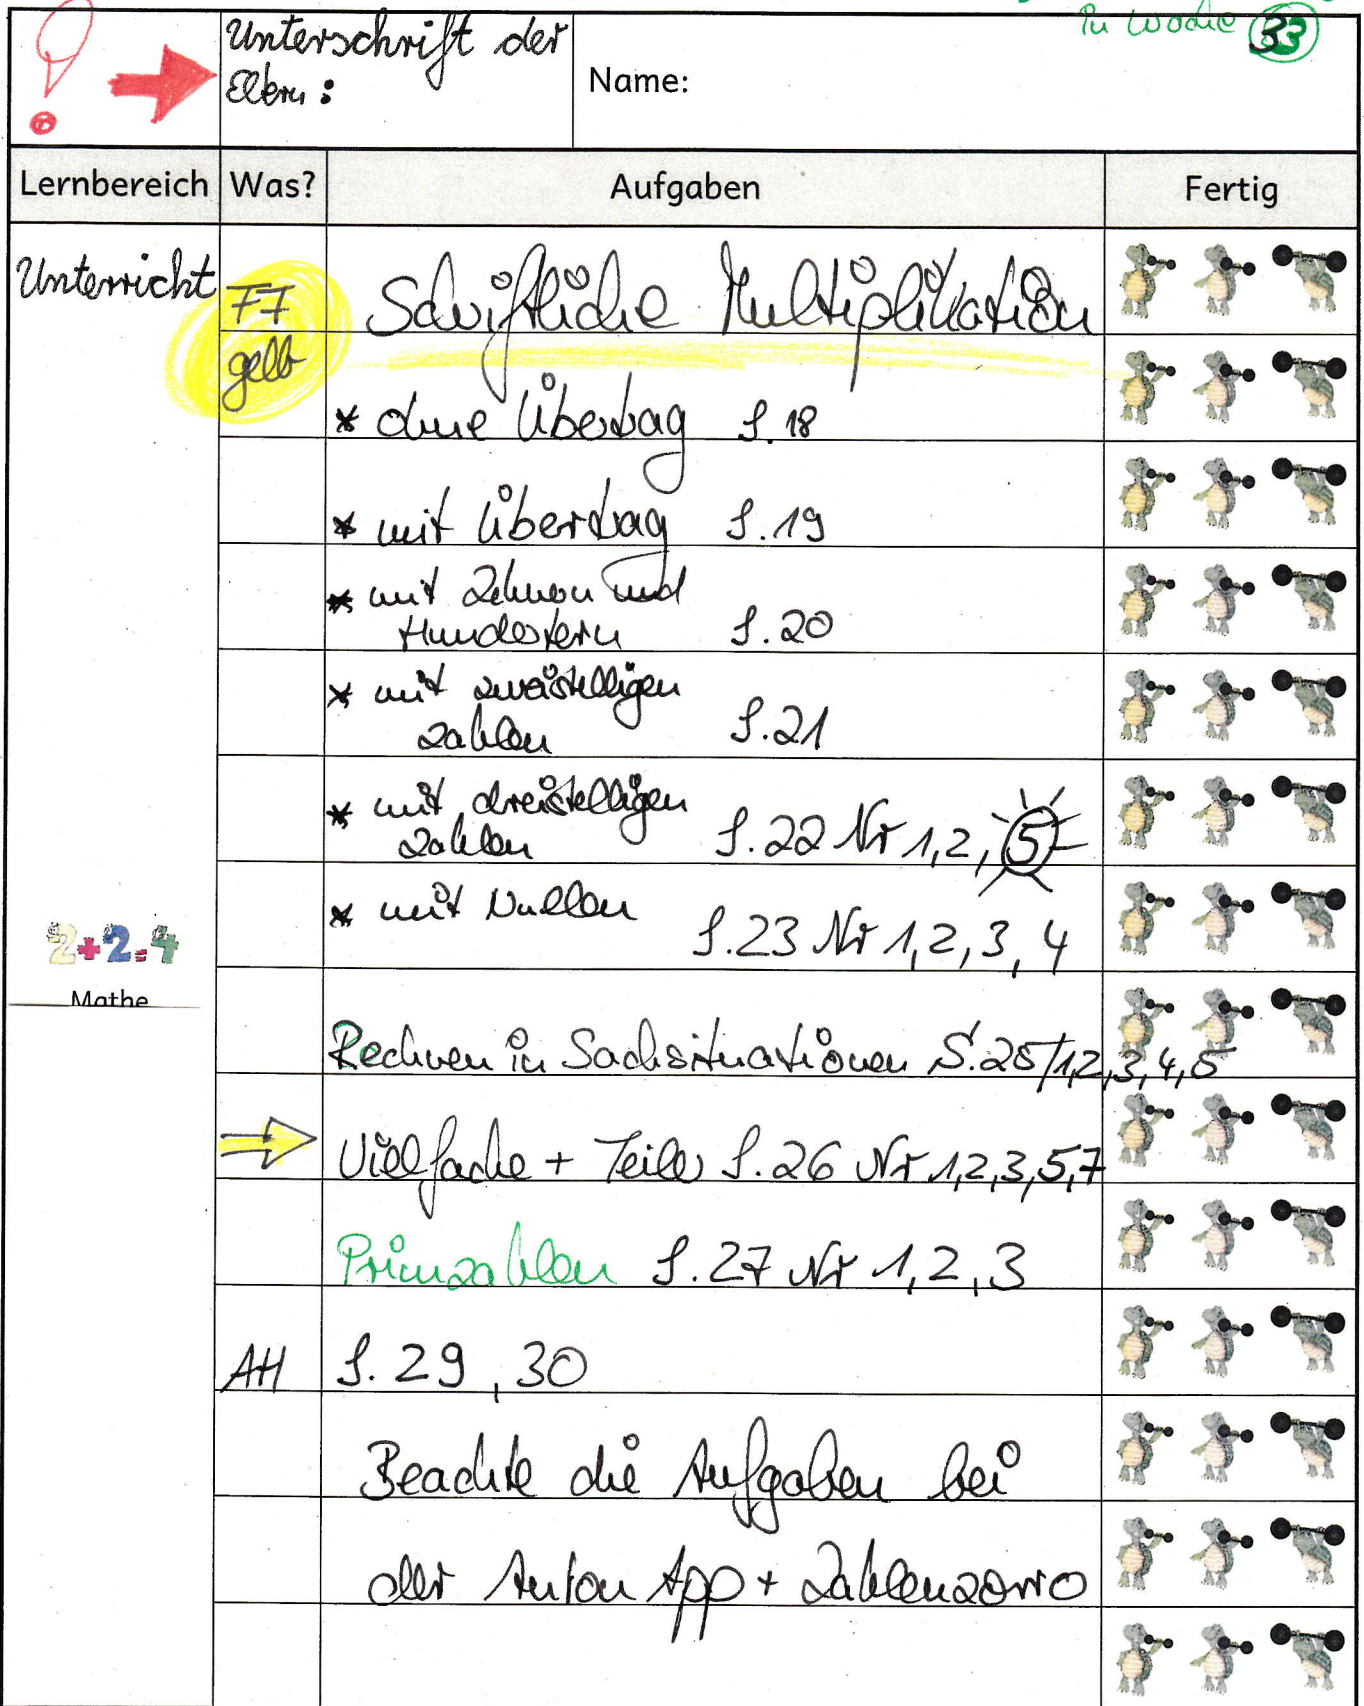 in Woche 33
Unterschrift der
Eltern:
Name:
Lernbereich Was? Aufgaben Fertig
Unterricht
F7 Schriftliche Multiplikation
gelb
* ohne Übertrag S. 18
* mit Übertrag S. 19
* mit Zehnern und
Hundertern S. 20
* mit zweistelligen
Zahlen S. 21
* mit dreistelligen
Zahlen S. 22 Nr 1, 2, 5
* mit Nullen
S. 23 Nr 1, 2, 3, 4
2+2=4
Mathe
Rechnen in Sachsituationen S. 25/1,2,3,4,5
Vielfache + Teiler S. 26 Nr 1,2,3,5,7
Primzahlen S. 27 Nr 1, 2, 3
AH S. 29, 30
Beachte die Aufgaben bei
der Anton App + Zahlenzorro